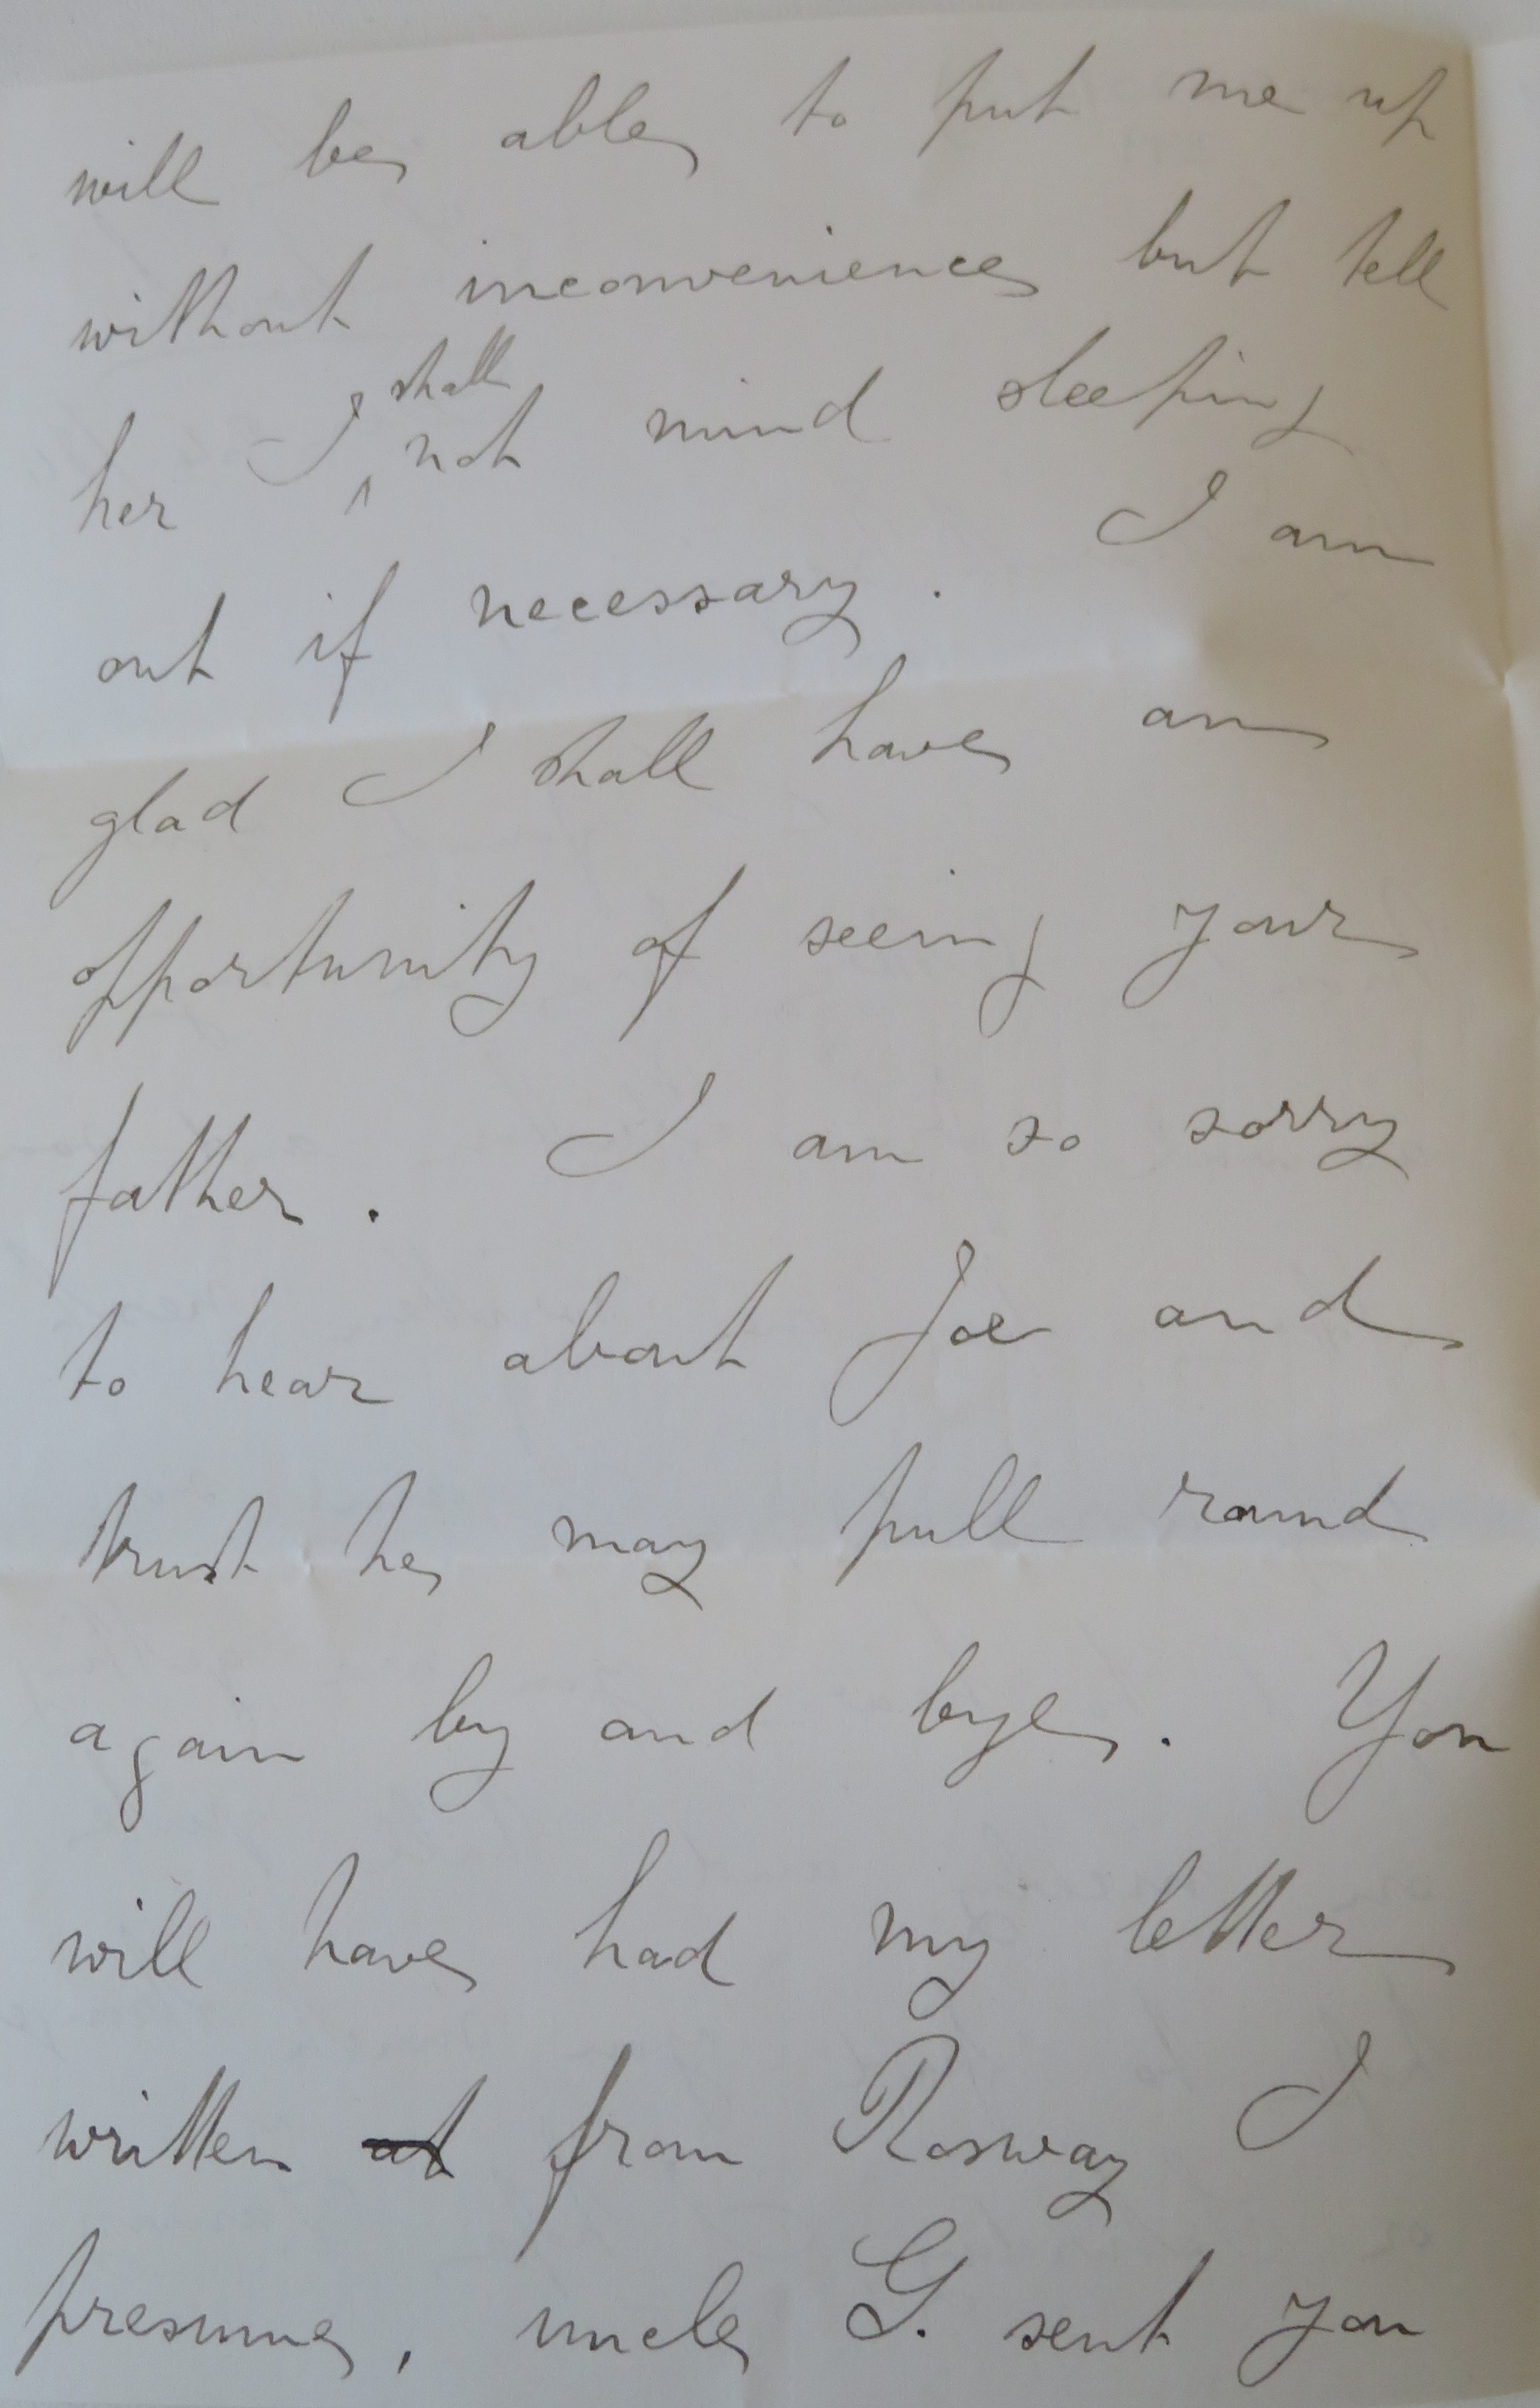 will be able to put me up
without inconvenience but tell
her I shall not mind sleeping
out if necessary. I am
glad I shall have an
opportunity of seeing your
father. I am so sorry
to hear about Joe and
trust he may pull round
again by and bye. You
will have had my letter
written at from Rosway I
presume, uncle G. sent you